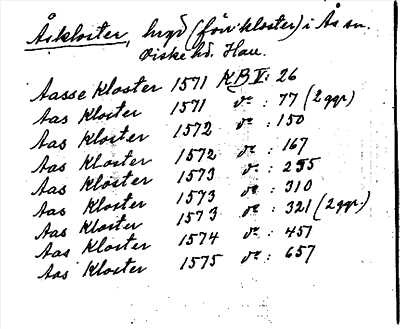 Åskloster, hrgd (förr kloster) i Ås sn.
Viske hd. Hall.
Aasse Kloster 1571 KB V: 26
Aas Kloster 1571 do : 77 (2 ggr)
Aas Kloster 1572 do : 150
Aas Kloster 1572 do : 167
Aas Kloster 1573 do : 255
Aas Kloster 1573 do : 310
Aas Kloster 1573 do : 321 (2 ggr.)
Aas Kloster 1574 do : 457
Aas Kloster 1575 do : 657